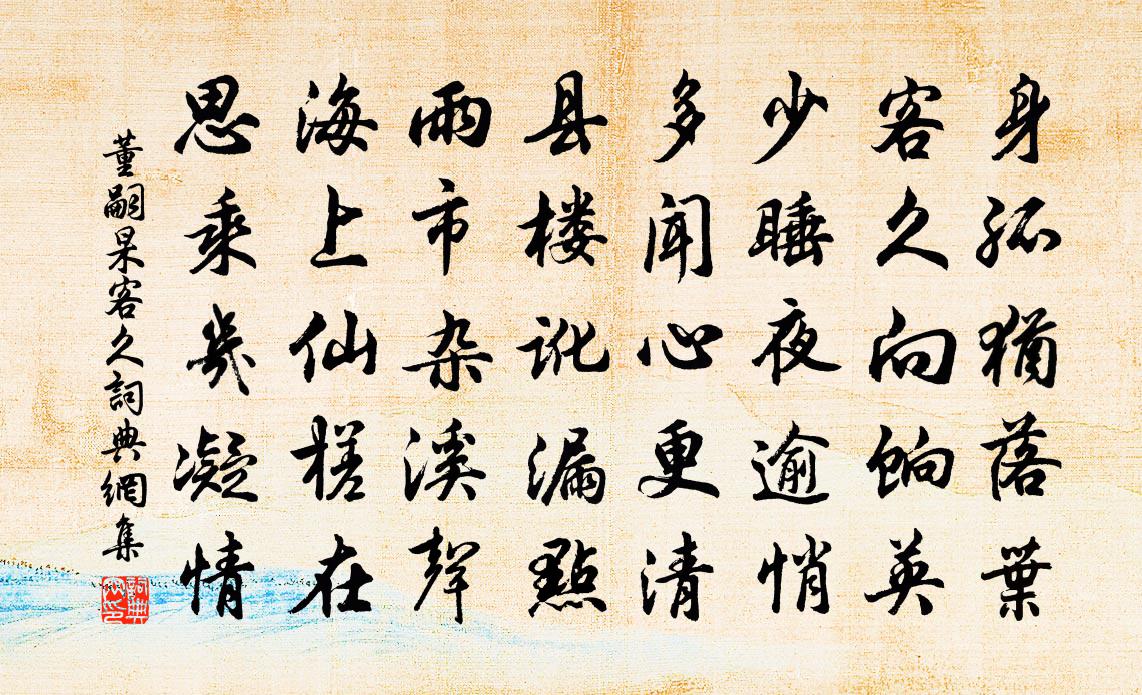 身孤犹落葉
客久向蚼英
少睡夜逾悄
多闻心更清
县楼讹漏點
雨市杂溪聲
海上仙槎在
思乘幾凝情
董嗣杲客久詞典網集